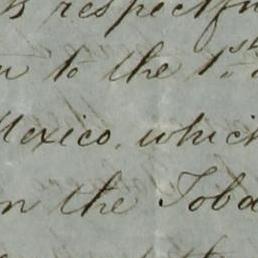 respectfu
to the 1st
Mexico, which
the Toba
the